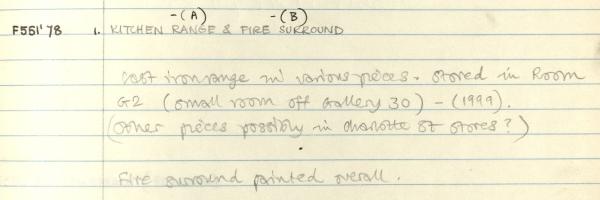 -(A) -(B)
F551'78 1. KITCHEN RANGE & FIRE SURROUND
Cast iron range in various pieces. Stored in Room
G2 (small room off Gallery 30) - (1999).
(Other pieces possibly in Charlotte St stores?)
Fire surround painted overall.